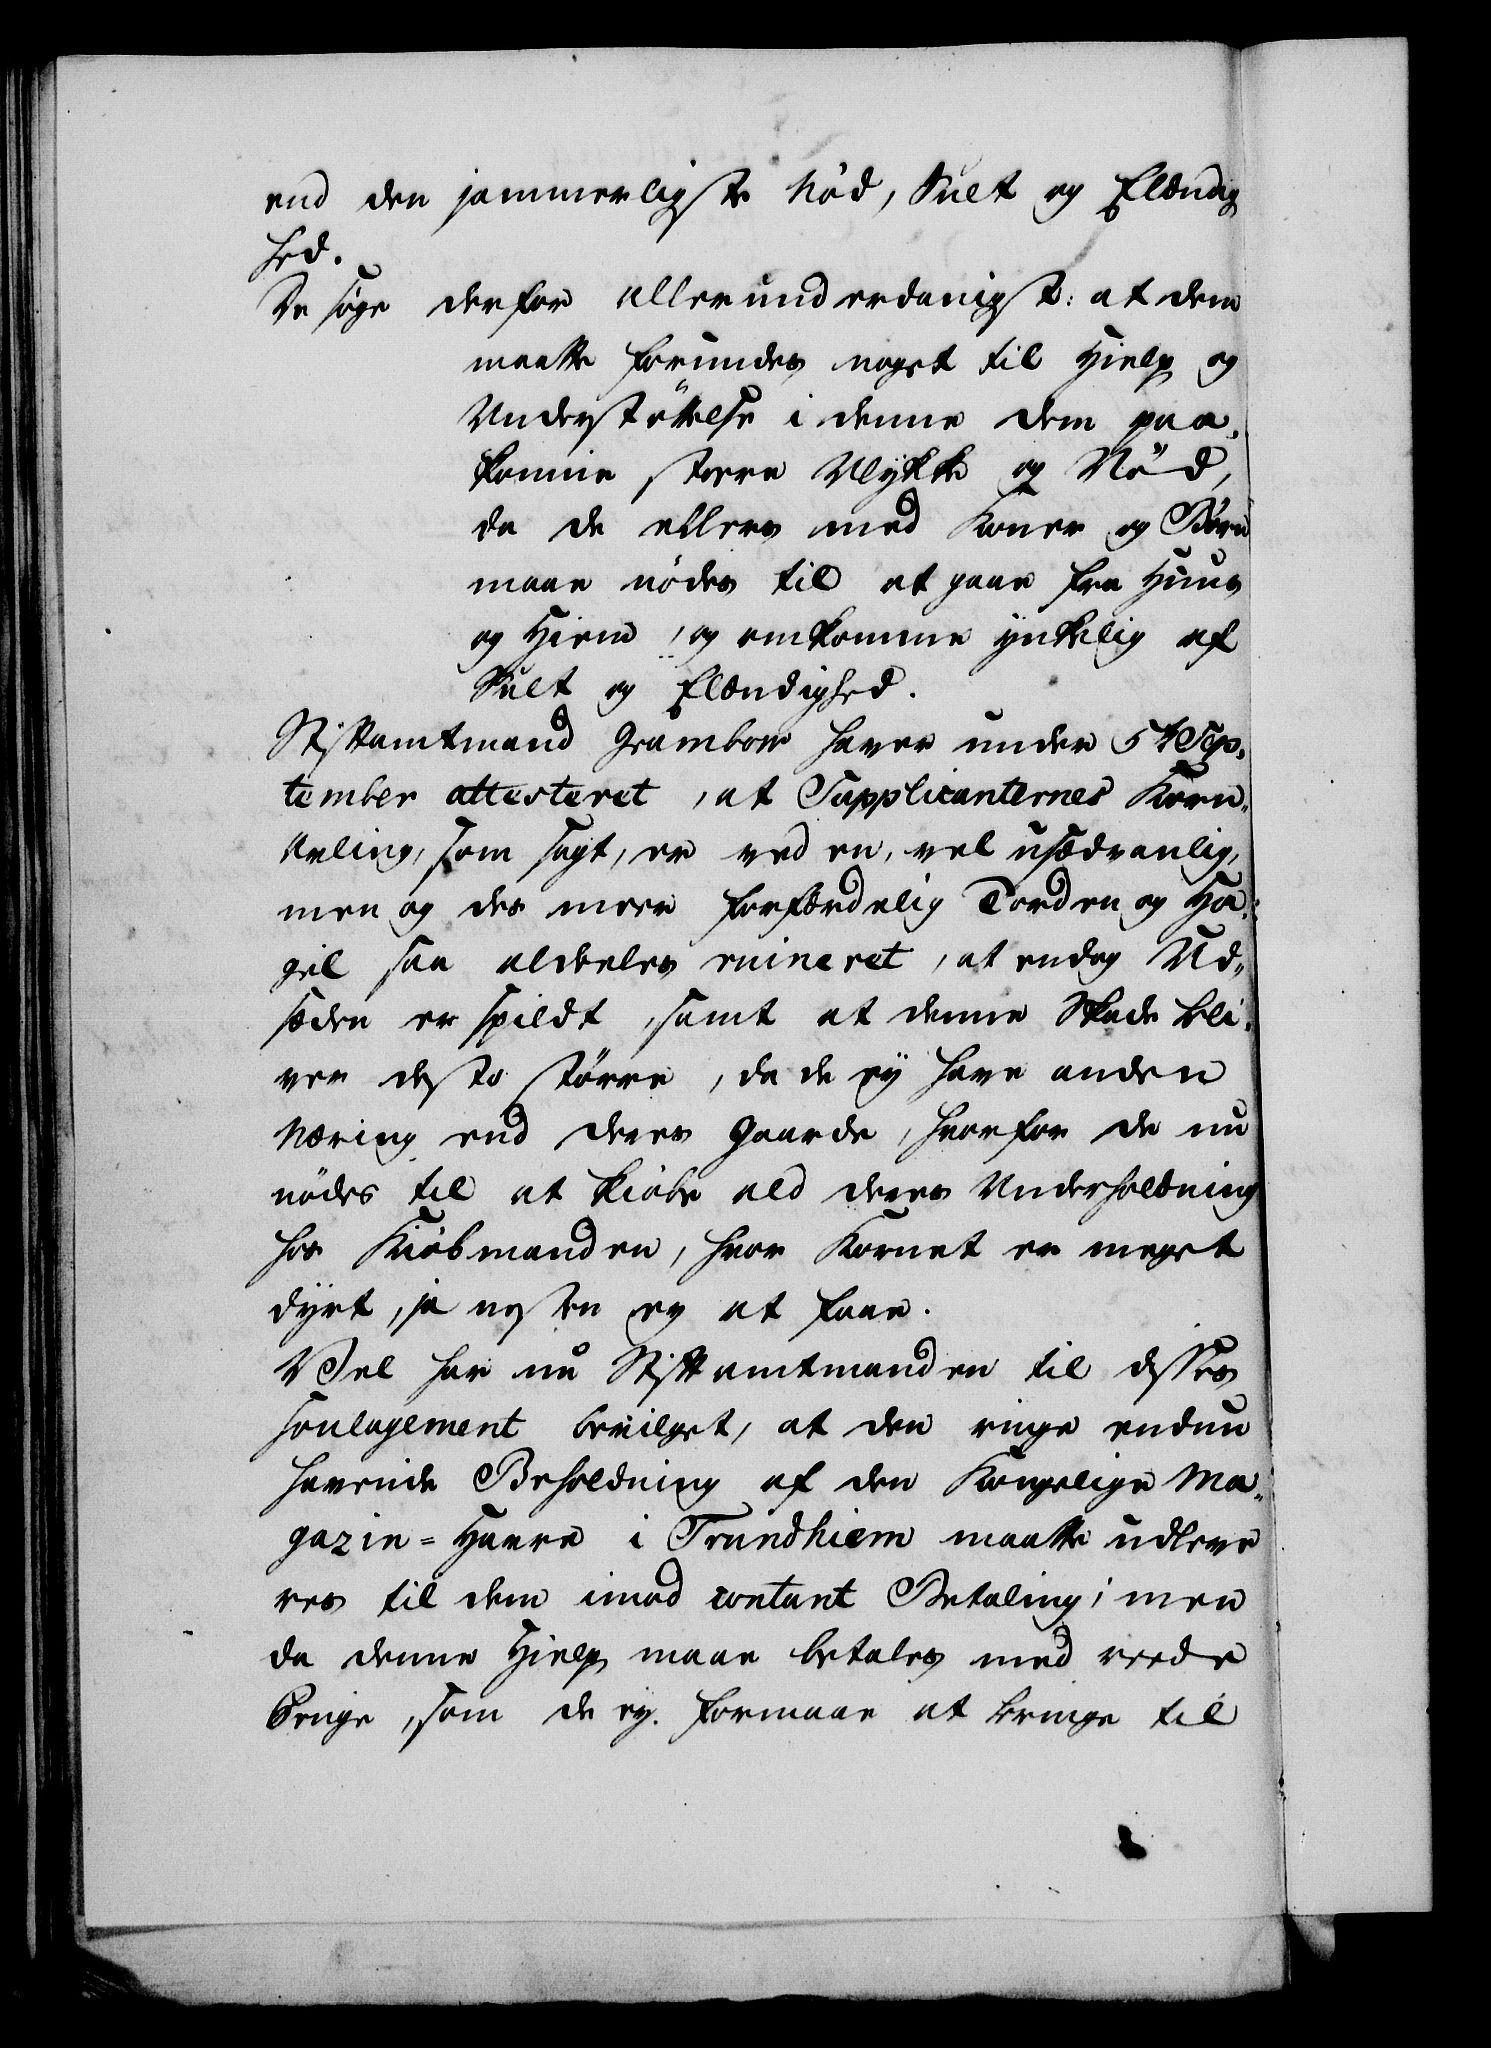 end den jammerligste Nød, Sult og Elændig
hed.
De søge derfor allerunderdanigst: at dem
maatte forundes noget til Hielp og
Understøttelse i denne dem paa-
komne store Ulykke og Nød,
da de ellers med Koner og Børn
maae nødes til at gaae fra Huus
og Hiem, og omkomme ynkelig af
Sult og Elændighed.
Stiftamtmand Grambow haver under 5te Sep-
tember attesteret, at Supplicanternes Korn-
Avling, som sagt, er ved en, vel usædvanlig,
men og des meer forfærdelig Torden og Ha-
gel saa aldeeles ruineret, at endog Ud-
sæden er spildt, samt at denne Skade bli-
ver desto større, da de ey have anden
Næring end deres Gaarde, hvorfor de nu
nødes til at kiøbe all deres Underholdning
hos Kiøbmanden, hvor Kornet er meget
dyrt, ja næsten ey at faae.
Vel har nu Stiftamtmanden til disses
Soulagement bevilget, at den ringe endnu
havende Beholdning af den Kongelige Ma-
gazin-Havre i Trundhiem maatte udleve
res til dem imod contant Betaling; men
da denne Hielp maae betales med reede
Penge, som de ey formaae at bringe til